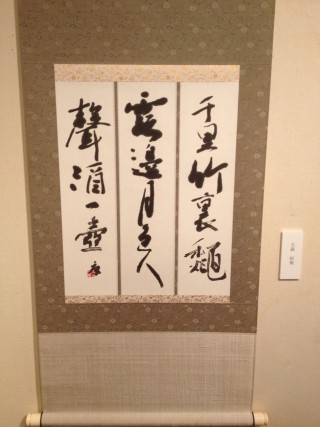 千里竹裏龝
雲邊月色人
聲酒一壺